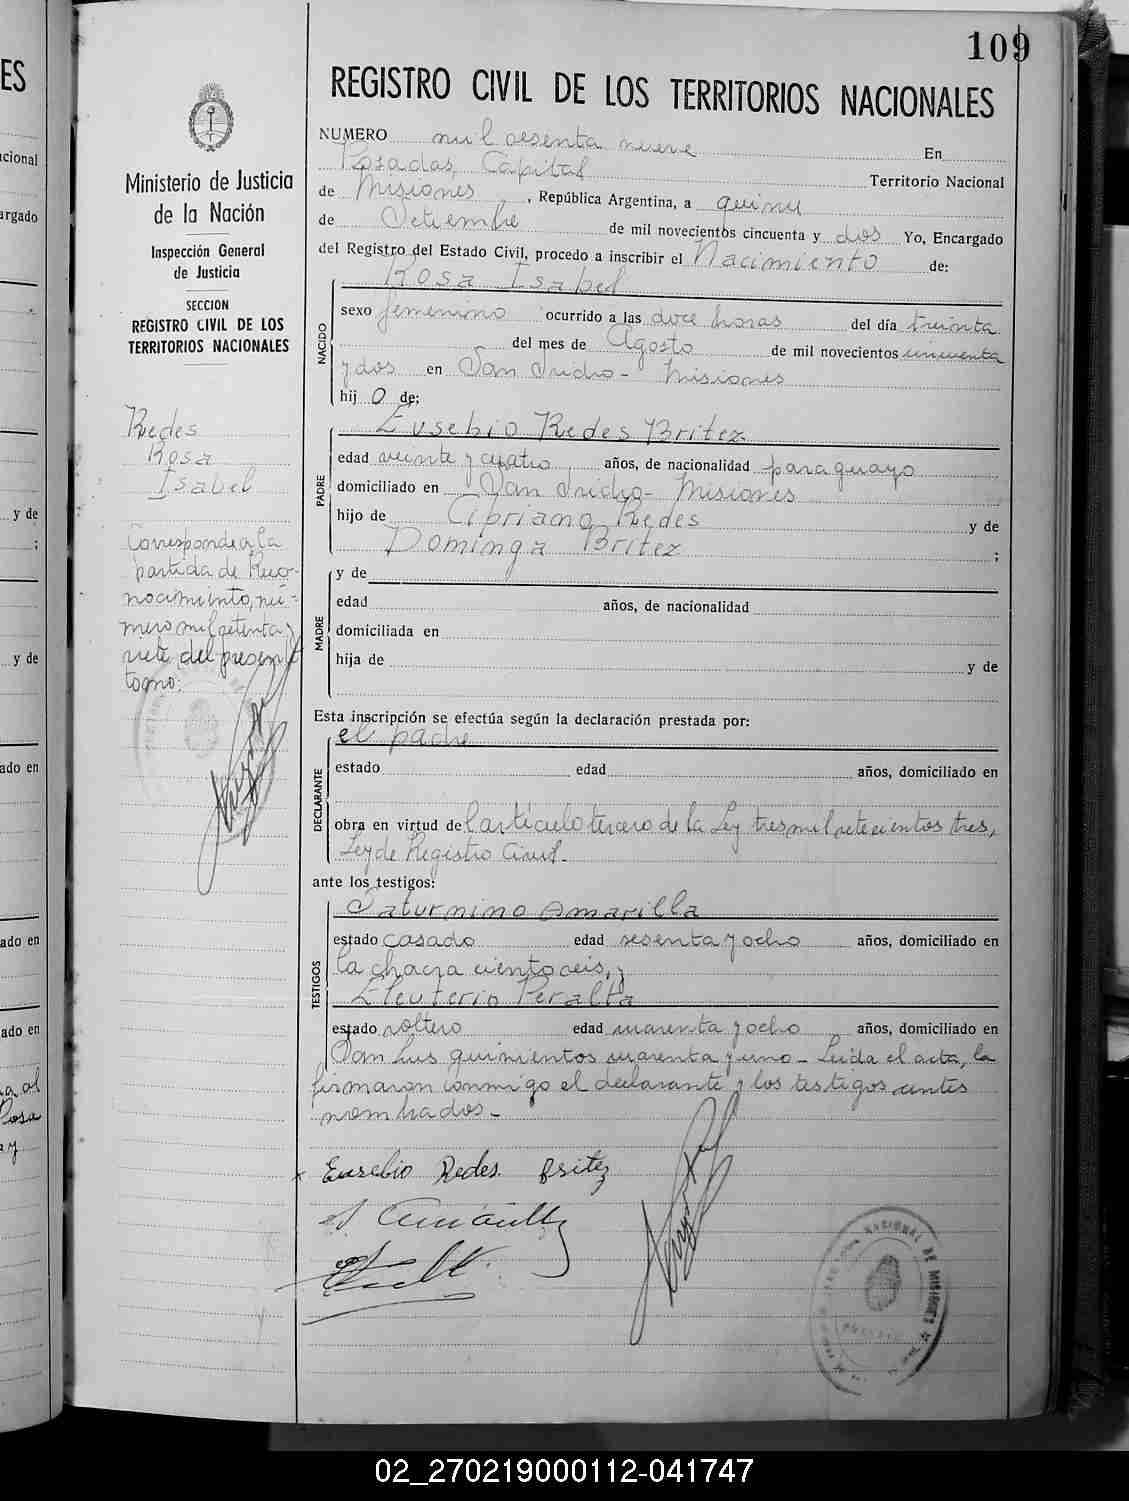 109
REGISTRO CIVIL DE LOS TERRITORIOS NACIONALES
NUMERO mil sesenta nueve En
Posadas, Capital Territorio Nacional
de Misiones, República Argentina, a quince
de Setiembre de mil novecientos cincuenta y dos Yo, Encargado
del Registro del Estado Civil, procedo a inscribir el Nacimiento de:
Rosa Isabel
NACIDO
sexo femenino ocurrido a las doce horas del día treinta
del mes de Agosto de mil novecientos cincuenta
y dos en San Isidro - Misiones
hij o de:
Eusebio Redes Britez
PADRE
edad veinte y cuatro años, de nacionalidad paraguayo
domiciliado en San Isidro - Misiones
hijo de Cipriano Redes y de
Dominga Britez ;
MADRE
y de
edad años, de nacionalidad
domiciliada en
hija de y de
Esta inscripción se efectúa según la declaración prestada por:
el padre
DECLARANTE
estado edad años, domiciliado en
obra en virtud del artículo tercero de la Ley tres mil setecientos tres,
Ley de Registro Civil.-
ante los testigos:
Saturnino Amarilla
TESTIGOS
estado casado edad sesenta y ocho años, domiciliado en
la chacra ciento seis, y
Eleuterio Peralta
estado soltero edad cuarenta y ocho años, domiciliado en
San Luis quinientos cuarenta y uno - Leída el acta, la
firmaron conmigo el declarante y los testigos antes
nombrados.-
Eusebio Redes. Britez
Ministerio de Justicia
de la Nación
Inspección General
de Justicia
SECCION
REGISTRO CIVIL DE LOS
TERRITORIOS NACIONALES
Redes
Rosa
Isabel
Corresponde a la
partida de Reco-
nocimiento, nú-
mero mil setenta y
siete, del presente
tomo:
NACIONAL DE MISIONES
ES
cional
argado
y de
;
y de
ado en
ado en
ado en
Rosa
02_270219000112-041747